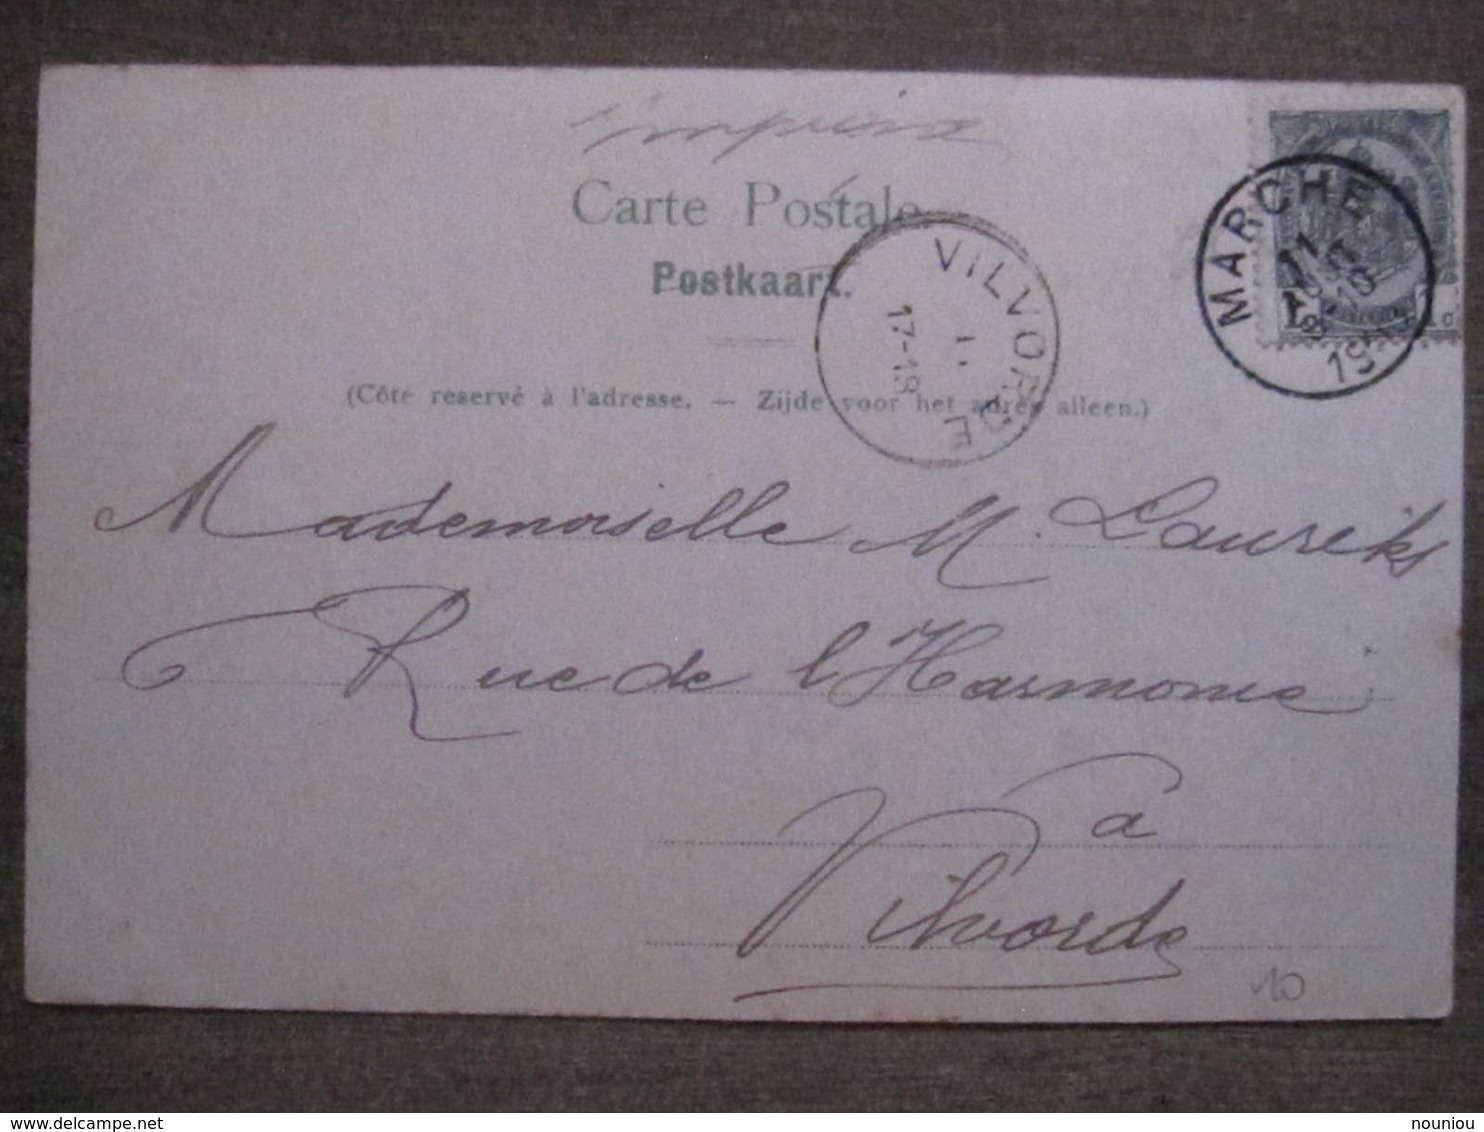 imprimé
Carte Postale
Postkaart.
MARCHE
11
10
19
VILVORDE
17-18
(Côté reservé à l'adresse. — Zijde voor het adres alleen.)
Mademoiselle M. Laureiks
Rue de l'Harmonie
à
Vilvorde
10
nouniou
delcampe.net